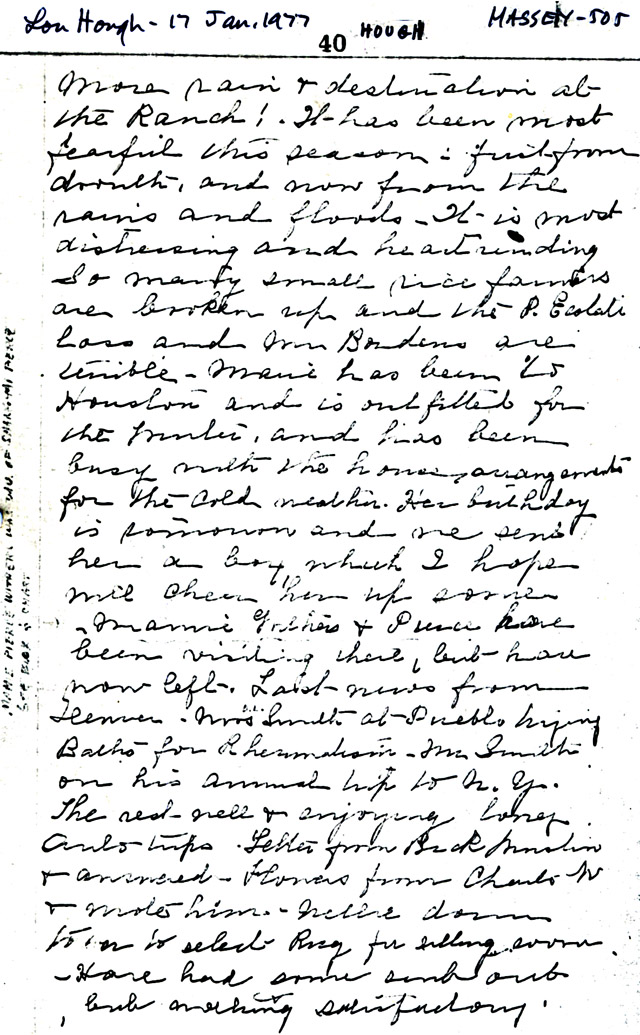 Lou Hough - 17 Jan. 1977
HOUGH
MASSEY-505
40
More rain & destruction at
the Ranch! . It has been most
fearful this season : first from
drouth, and now from the
rains and floods - It is most
distressing and heart rending
So many small rice farmers
are broken up and the P. Estate
loss and Mrs Bordens are
terrible - Marie has been to
Houston and is outfitted for
the winter, and has been
busy with the house arrangements
for the cold weather. Her birthday
is tomorrow and we send
her a box, which I hope
will cheer her up some
- Mamie & Pierce have
been visiting there, but have
now left. Last news from
Denver - Mrs Smith at Pueblo trying
Baths for Rheumatism - Mr Smith
on his annual trip to N. Y.
The rest well & enjoying long
Auto trips . Letter from Buck
& answered - Flowers from Charles W
& wrote him. - Nellie down
town to select Rug for sitting room.
- Have had some sent out
, but nothing satisfactory .
PIERCE WITHERS WAS OF SHANGHAI PIERCE
SEE BOOK & CHART